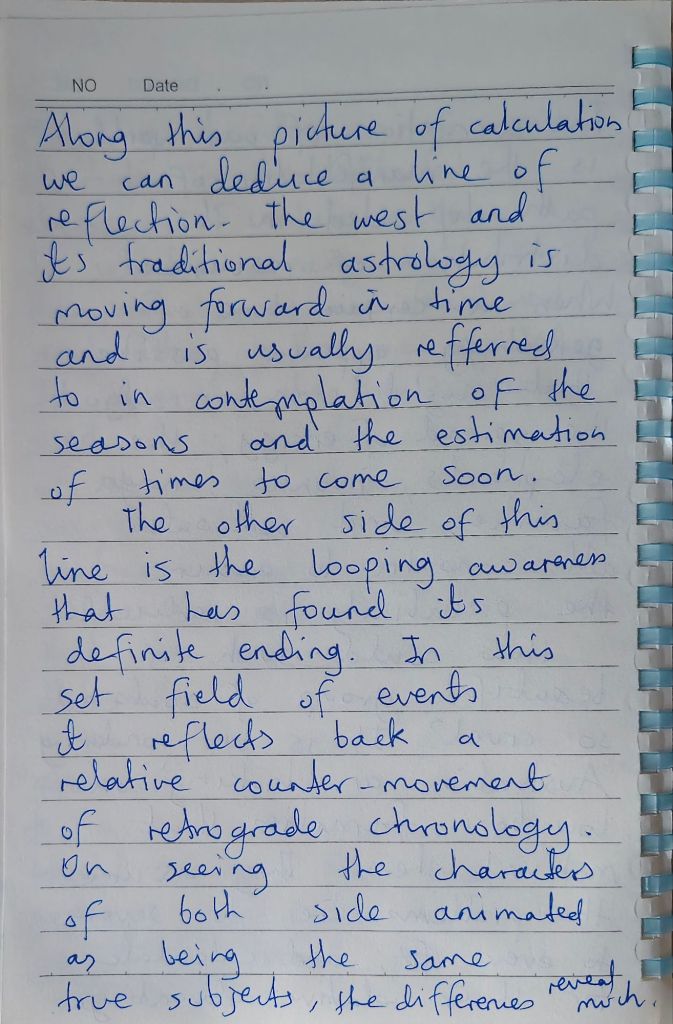 NO Date . .
Along this picture of calculation
we can deduce a line of
reflection. The west and
its traditional astrology is
moving forward in time
and is usually refferred
to in contemplation of the
seasons and the estimation
of times to come soon.
The other side of this
line is the looping awareness
that has found its
definite ending. In this
set field of events
it reflects back a
relative counter-movement
of retrograde chronology.
On seeing the characters
of both side animated
as being the same
true subjects, the differences reveal
much.